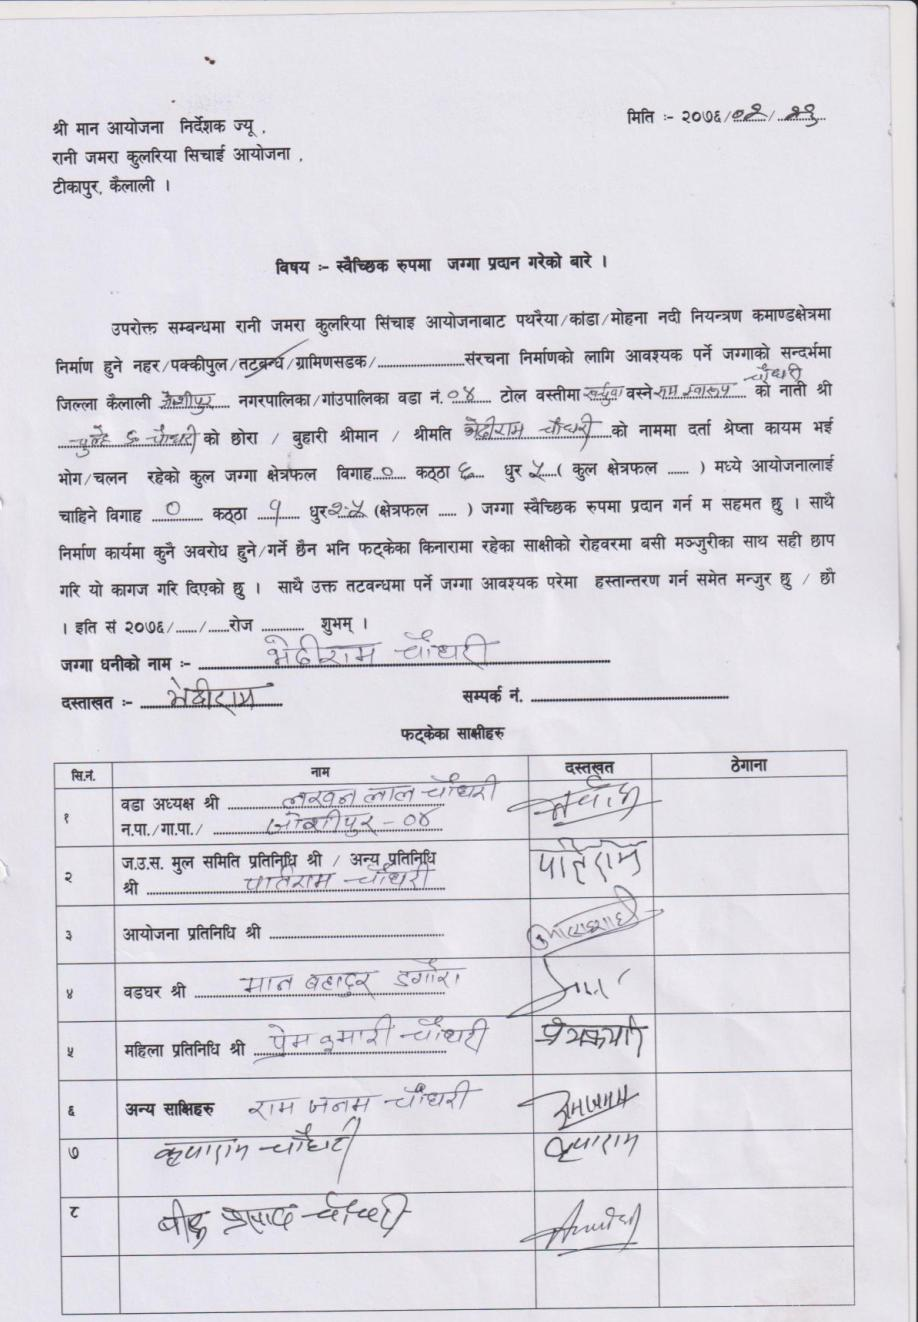 मिति :- २०७६/०२/२३
श्री मान आयोजना निर्देशक ज्यू ,
रानी जमरा कुलरिया सिचाई आयोजना ,
टीकापुर, कैलाली ।
विषय :- स्वैच्छिक रुपमा जग्गा प्रदान गरेको बारे ।
उपरोक्त सम्बन्धमा रानी जमरा कुलरिया सिंचाइ आयोजनाबाट पथरैया/कांडा/मोहना नदी नियन्त्रण कमाण्डक्षेत्रमा
निर्माण हुने नहर/पक्कीपुल/तटबन्ध/ग्रामिणसडक/....................संरचना निर्माणको लागि आवश्यक पर्ने जग्गाको सन्दर्भमा
जिल्ला कैलाली जोशीपुर नगरपालिका/गांउपालिका वडा नं. ०४ टोल वस्तीमा वस्ने राम स्वारुप चौधरी को नाती श्री
चौधरी को छोरा / बुहारी श्रीमान / श्रीमति भेदीराम चौधरी को नाममा दर्ता श्रेष्ता कायम भई
भोग/चलन रहेको कुल जग्गा क्षेत्रफल विगाह ० कठ्ठा ६ धुर ५ ( कुल क्षेत्रफल ...... ) मध्ये आयोजनालाई
चाहिने विगाह ० कठ्ठा १ धुर २.५ (क्षेत्रफल ..... ) जग्गा स्वैच्छिक रुपमा प्रदान गर्न म सहमत छु । साथै
निर्माण कार्यमा कुनै अवरोध हुने/गर्ने छैन भनि फट्केका किनारामा रहेका साक्षीको रोहवरमा बसी मञ्जुरीका साथ सही छाप
गरि यो कागज गरि दिएको छु । साथै उक्त तटवन्धमा पर्ने जग्गा आवश्यक परेमा हस्तान्तरण गर्न समेत मन्जुर छु / छौ
। इति सं २०७६/....../.....रोज .......... शुभम् ।
जग्गा धनीको नाम :- भेदीराम चौधरी
दस्ताखत :- भेदीराम सम्पर्क नं. ..............................
फट्केका साक्षीहरु
सि.नं. नाम दस्तखत ठेगाना
१ वडा अध्यक्ष श्री लखन लाल चौधरी
न.पा./गा.पा./ जोशीपुर - ०४
२ ज.उ.स. मुल समिति प्रतिनिधि श्री / अन्य प्रतिनिधि
श्री पातिराम चौधरी पातिराम
३ आयोजना प्रतिनिधि श्री ..............................
४ वडघर श्री मान बहादुर डगौरा
५ महिला प्रतिनिधि श्री प्रेम कुमारी चौधरी
६ अन्य साक्षिहरु राम जनम चौधरी रामजनम
७ कृपाराम चौधरी कृपाराम
८ प्रसाद चौधरी